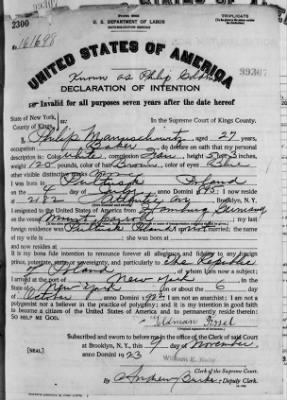 2300
U. S. DEPARTMENT OF LABOR
NATURALIZATION SERVICE
TRIPLICATE
No. 161698
UNITED STATES OF AMERICA
Known as Philip
DECLARATION OF INTENTION
Invalid for all purposes seven years after the date hereof
State of New York,
County of Kings,
In the Supreme Court of Kings County.
I, Philip aged 27 years,
occupation Baker do declare on oath that my personal
description is: Color white, complexion Fair, height 5 feet 3 inches,
weight 125 pounds, color of hair Brown, color of eyes Blue
other visible distinctive marks none
I was born in Pultusk Poland
on the 4 day of anno Domini 1895; I now reside
at 2182 Atlantic Av Brooklyn, N.Y.
I emigrated to the United States of America from Hamburg Germany
on the vessel Mount Carroll my last
foreign residence was Pultusk Poland; I am not married; the name
of my wife is she was born at
and now resides at
It is my bona fide intention to renounce forever all allegiance and fidelity to any foreign
prince, potentate, state, or sovereignty, and particularly to The Republic
of Poland of whom I am now a subject;
I arrived at the port of New York in the
State of New York on or about the 6 day
of October anno Domini 1922; I am not an anarchist; I am not a
polygamist nor a believer in the practice of polygamy; and it is my intention in good faith
to become a citizen of the United States of America and to permanently reside therein:
SO HELP ME GOD.
Subscribed and sworn to before me in the office of the Clerk of said Court
at Brooklyn, N. Y., this 9 day of November,
[SEAL] anno Domini 1923
William E. Kelly
Clerk of the Supreme Court.
By Deputy Clerk.